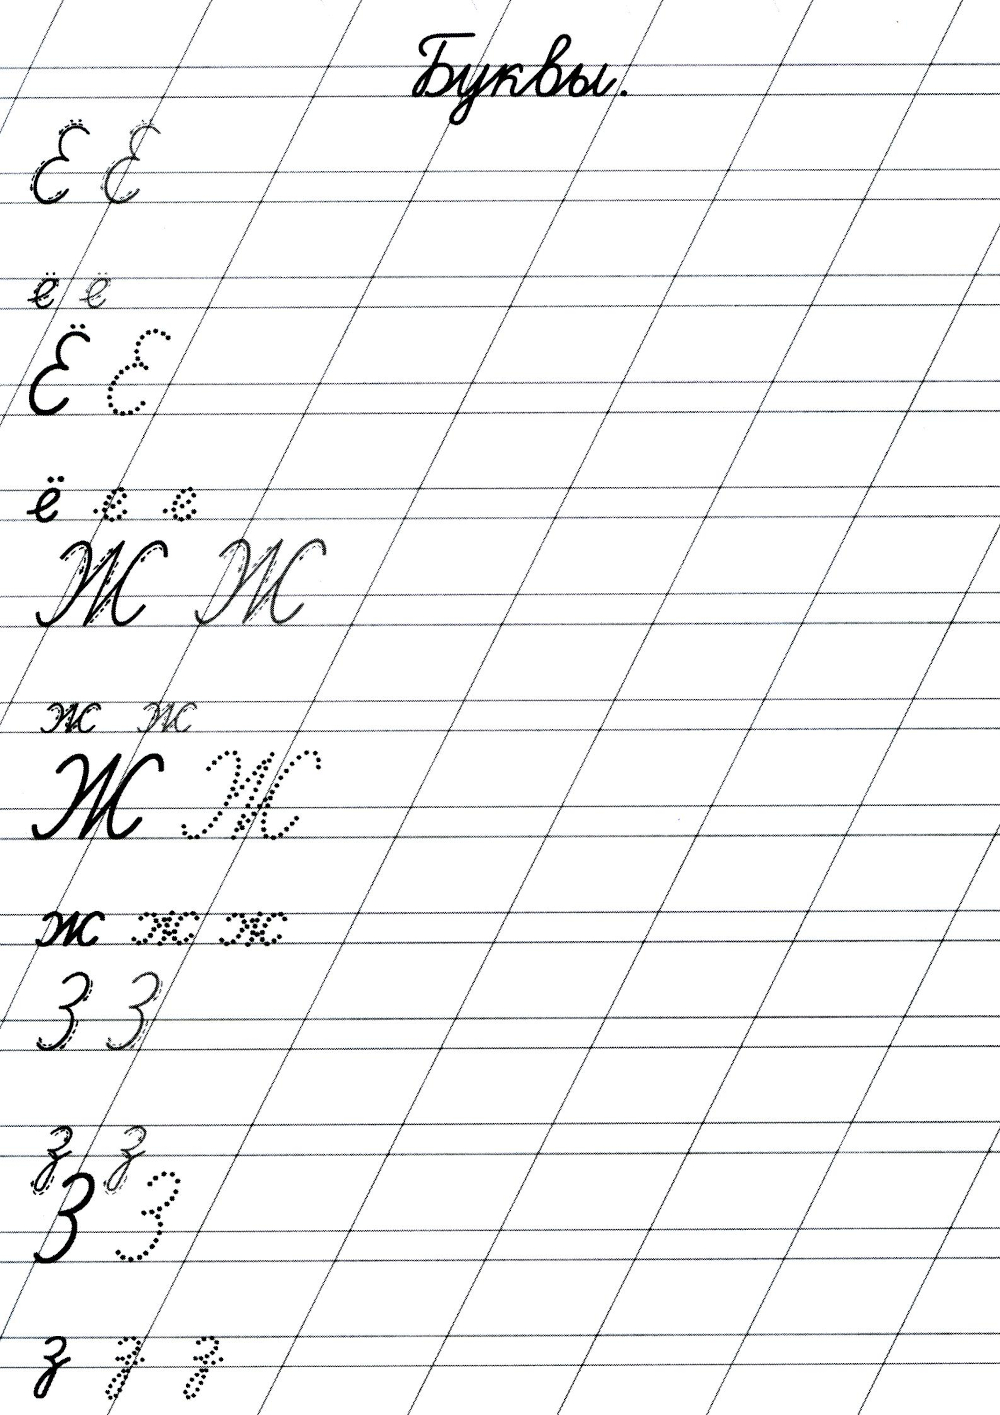 Буквы.
Ё Ё
ё ё
Ё Е
ё е е
Ж Ж
ж ж
Ж Ж
ж ж ж
З З
з з
З З
з з з